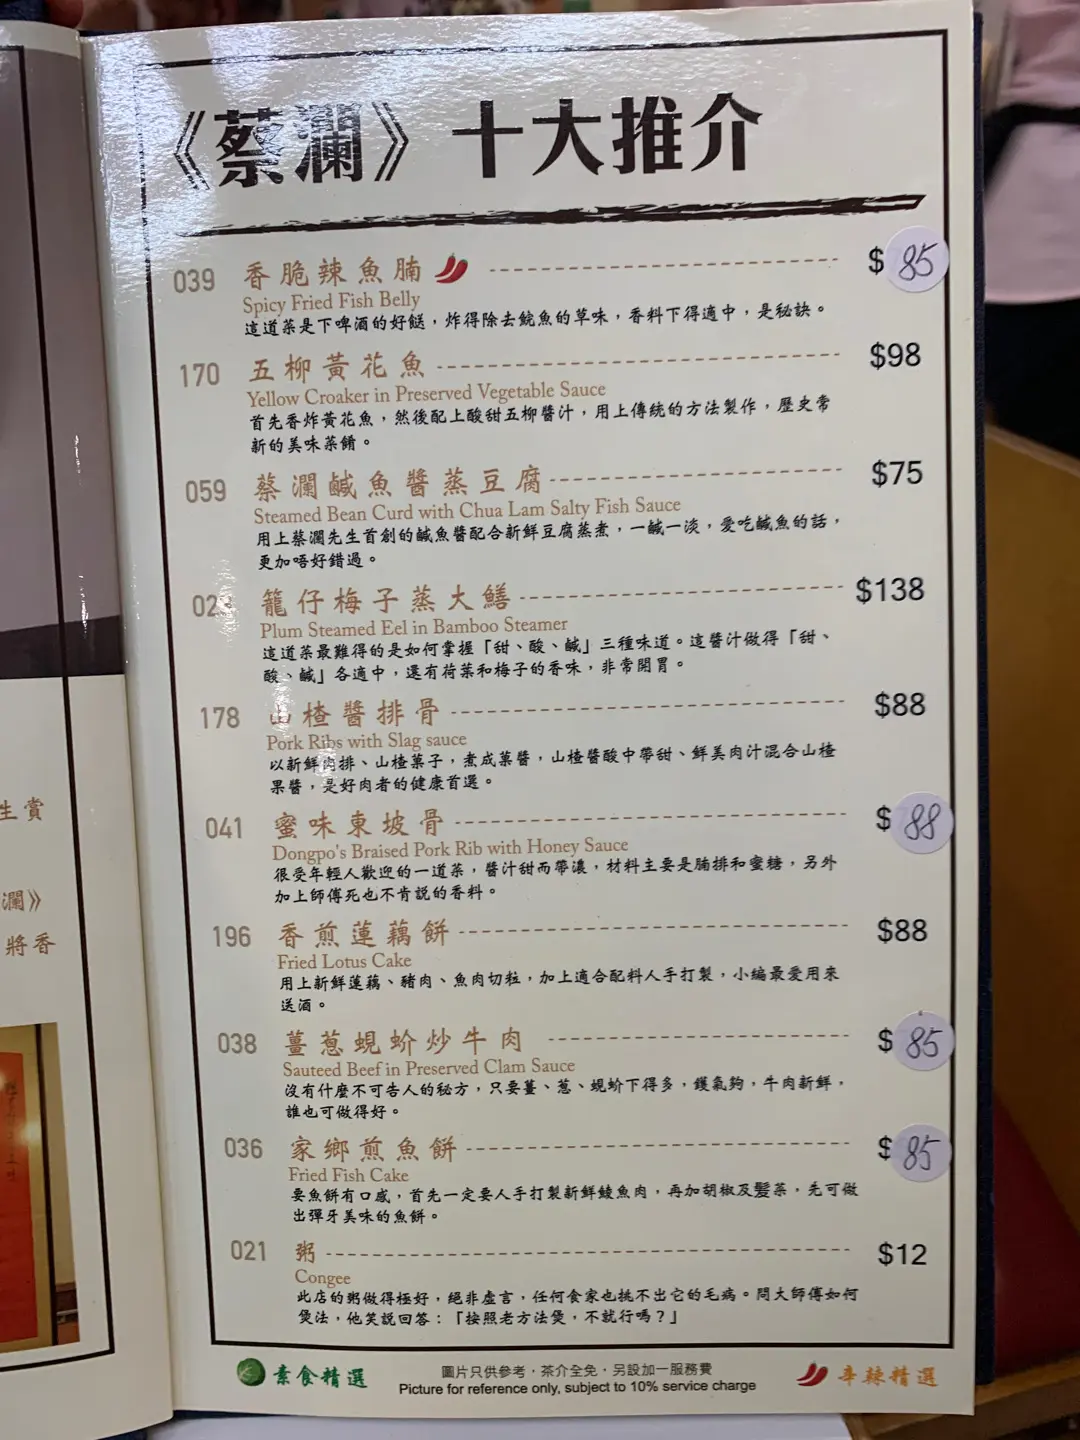 《蔡瀾》十大推介
039 香脆辣魚腩 $85
Spicy Fried Fish Belly
這道菜是下啤酒的好餸，炸得除去鯇魚的草味，香料下得適中，是秘訣。
170 五柳黃花魚 $98
Yellow Croaker in Preserved Vegetable Sauce
首先香炸黃花魚，然後配上酸甜五柳醬汁，用上傳統的方法製作，歷史常
新的美味菜餚。
059 蔡瀾鹹魚醬蒸豆腐 $75
Steamed Bean Curd with Chua Lam Salty Fish Sauce
用上蔡瀾先生首創的鹹魚醬配合新鮮豆腐蒸煮，一鹹一淡，愛吃鹹魚的話，
更加唔好錯過。
籠仔梅子蒸大鱔 $138
Plum Steamed Eel in Bamboo Steamer
這道菜最難得的是如何掌握「甜、酸、鹹」三種味道。這醬汁做得「甜、
酸、鹹」各適中，還有荷葉和梅子的香味，非常開胃。
178 山楂醬排骨 $88
Pork Ribs with Slag sauce
以新鮮肉排、山楂菓子，煮成菓醬，山楂醬酸中帶甜、鮮美肉汁混合山楂
果醬，是好肉者的健康首選。
041 蜜味東坡骨 $88
Dongpo's Braised Pork Rib with Honey Sauce
很受年輕人歡迎的一道菜，醬汁甜而帶濃，材料主要是腩排和蜜糖，另外
加上師傅死也不肯說的香料。
196 香煎蓮藕餅 $88
Fried Lotus Cake
用上新鮮蓮藕、豬肉、魚肉切粒，加上適合配料人手打製，小編最愛用來
送酒。
038 薑蔥蜆蚧炒牛肉 $85
Sauteed Beef in Preserved Clam Sauce
沒有什麼不可告人的秘方，只要薑、蔥、蜆蚧下得多，鑊氣夠，牛肉新鮮，
誰也可做得好。
036 家鄉煎魚餅 $85
Fried Fish Cake
要魚餅有口感，首先一定要人手打製新鮮鯪魚肉，再加胡椒及髮菜，先可做
出彈牙美味的魚餅。
021 粥 $12
Congee
此店的粥做得極好，絕非虛言，任何食家也挑不出它的毛病。問大師傅如何
煲法，他笑說回答：「按照老方法煲，不就行嗎？」
素食精選
圖片只供參考，茶介全免，另設加一服務費
Picture for reference only, subject to 10% service charge
辛辣精選
生賞
瀾》
將香